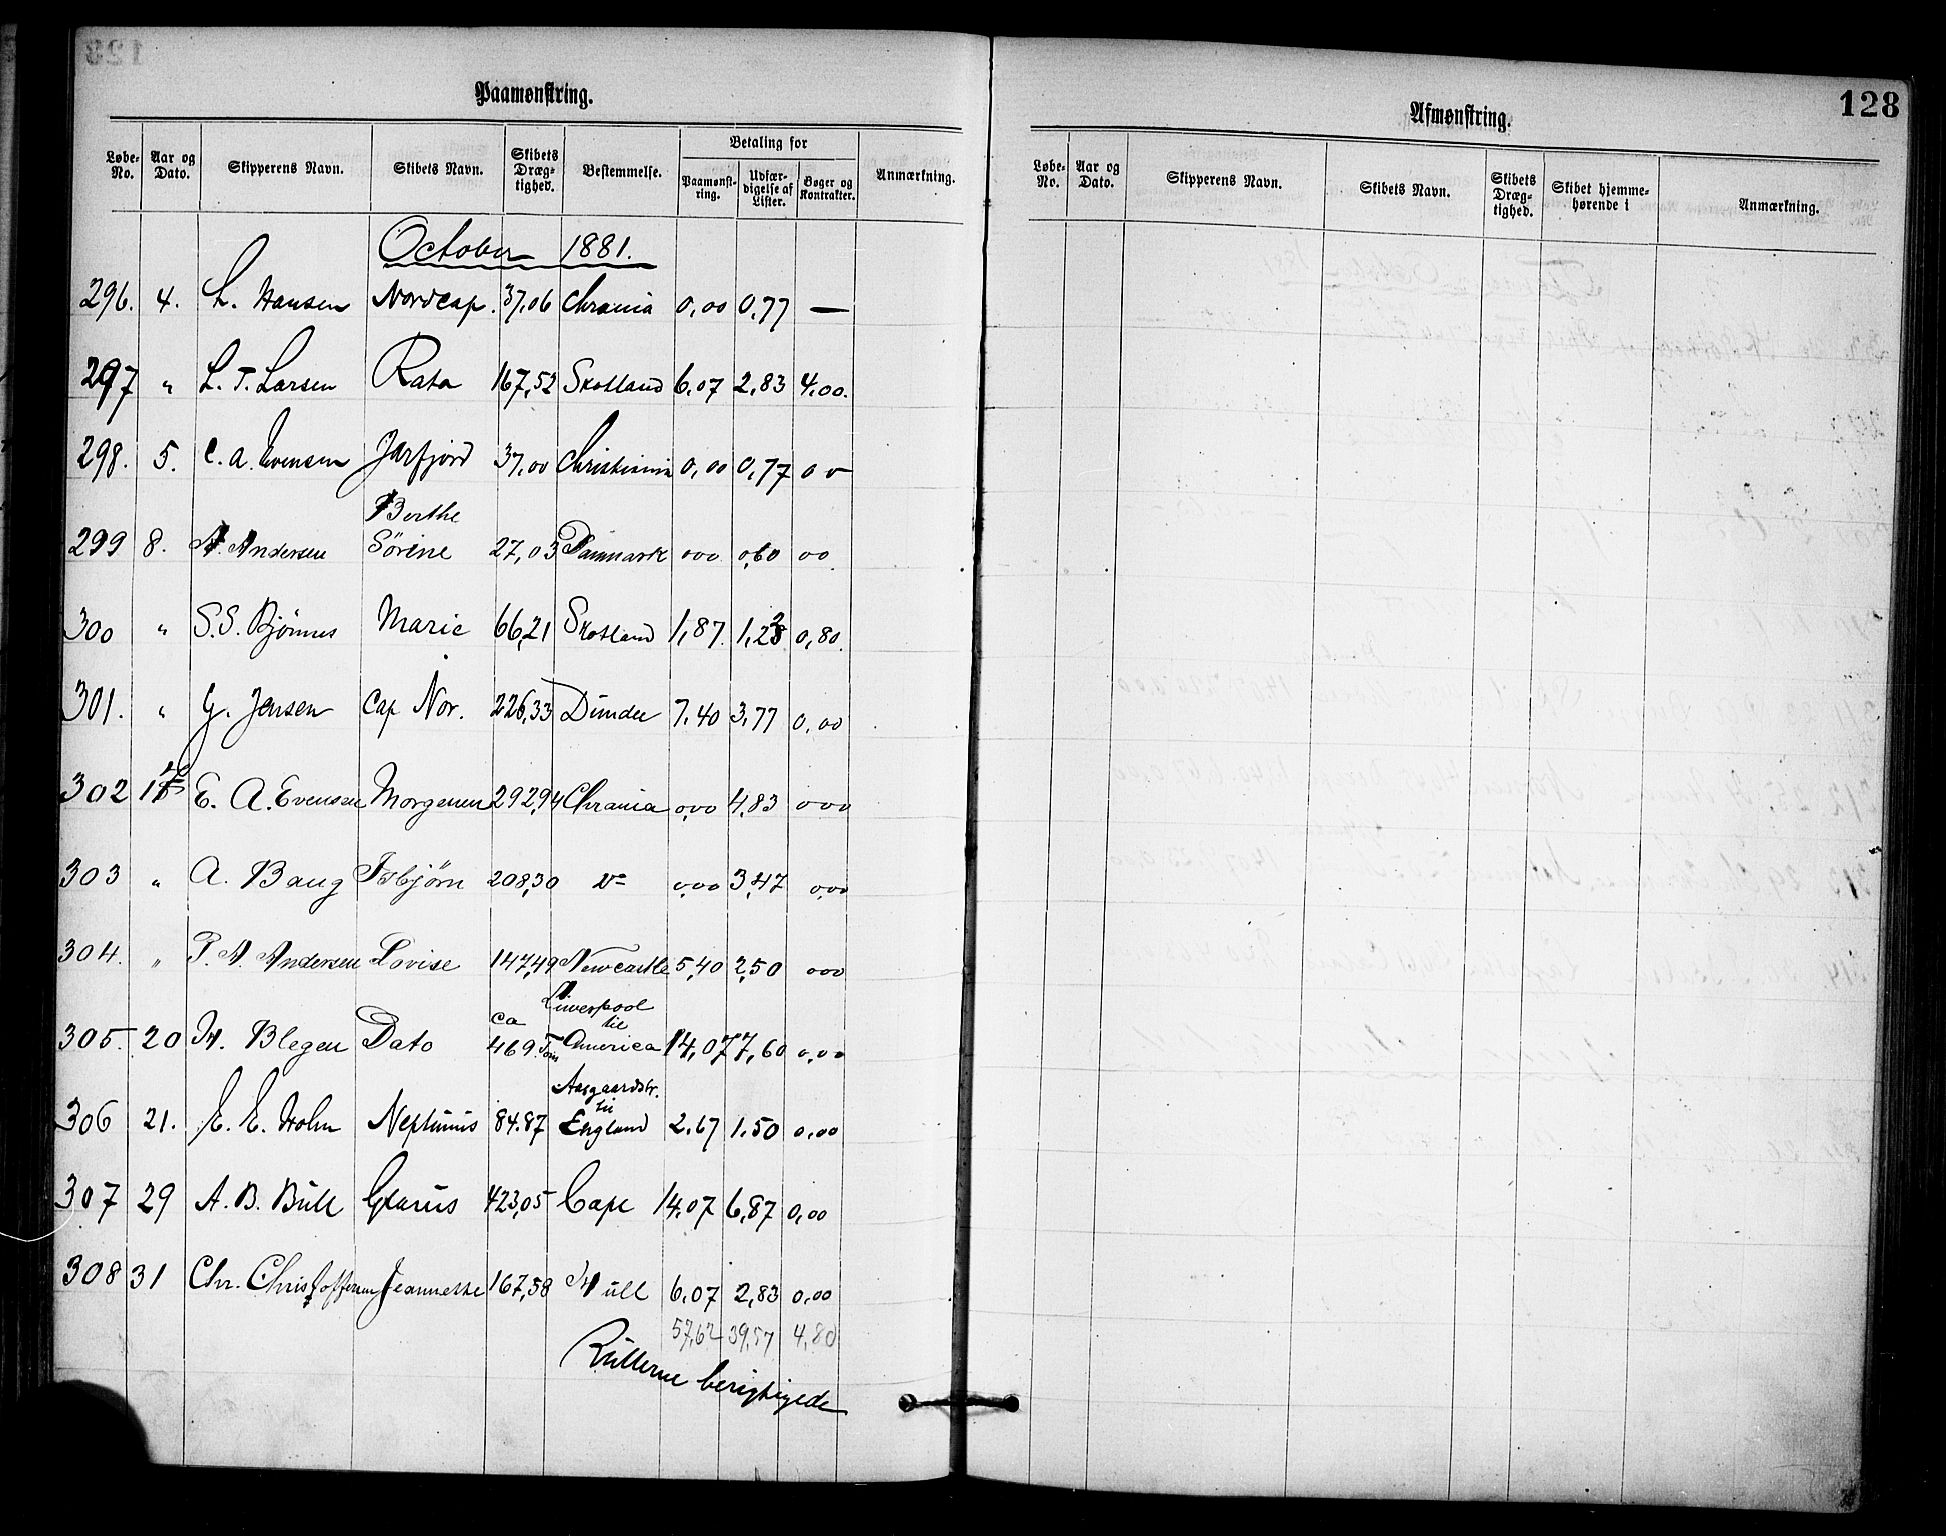 Paamønstring.
Løbe-No. | Aar og Dato. | Skipperens Navn. | Skibets Navn. | Skibets Dræg-tighed. | Bestemmelse. | Betaling for | Anmærkning.
Paamønst-ring. | Udfær-digelse af Lister. | Bøger og Kontrakter.
October 1881.
296. 4. L. Hansen Nordcap. 37,06 Chrania 0,00 0,77 —
297 " L. T. Larsen Rata 167,52 Skotland 6,07 2,83 4,00.
298. 5. C. A. Evensen Jarfjord 37,00 Christiania 0,00 0,77 0 0
Berthe
299 8. A. Andersen Sörine 27,03 Danmark 000 0,60 00.
300 " S. S. Bjönnes Marie 66,21 Skotland 1,87. 1,23 0,80.
301. " G. Jensen Cap Nor. 226,33 Dundee 7,40 3,77 0,00
302 E. A. Evensen Morgenen 292,94 Chrania 0,00 4,83 000
303 " A. Baug Isbjörn 208,30 do 0,00 3,47 0,00
304. " P. A. Andersen Lovise 147,49 Newcastle 5,40 2,50 000
ca Liverpool til
305. 20 H. Blegen Dato 469 Tons America 14,07 7,60 0,00
Aasgaardstr. til
306 21. E. E. Holm Neptunus 84.87 England 2.67 1.50 0,00
307 29 A. B. Bull Glarus 423,05 Cape 14,07 6,87 0,00
308 31 Chr. Christoffersen Jeannette 167,58 Hull 6,07 2,83 0,00
57,62 39,57 4,80
Rullerne berigtigede
Afmønstring.
128
Løbe-No. | Aar og Dato. | Skipperens Navn. | Skibets Navn. | Skibets Dræg-tighed. | Skibet hjemme-hørende i | Anmærkning.